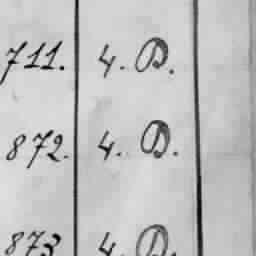 711. 4. D.
872. 4. D.
873 4. D.